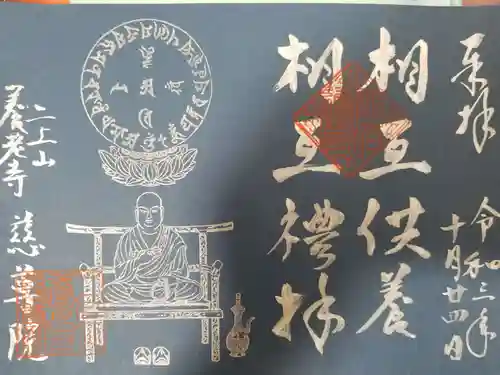 奉拝
令和三年
十月廿四日
相互供養
相互禮拝
二上山
養老寺
慈尊院